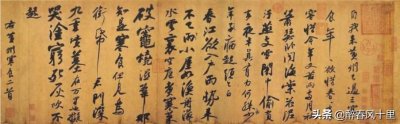 自我來黃州已過三寒
食年年欲惜春春去不
容惜今年又苦雨兩月秋
蕭瑟臥聞海棠花泥
污燕支雪闇中偷負
去夜半真有力何殊
少年子病起頭已白
春江欲入戶雨勢來
不已雨小屋如漁舟濛濛
水雲裏空庖煮寒菜
破竈燒濕葦那
知是寒食但見烏
銜帋君門深
九重墳墓在萬里也擬
哭塗窮死灰吹不
起
右黃州寒食二首
头条 @醉春风十里